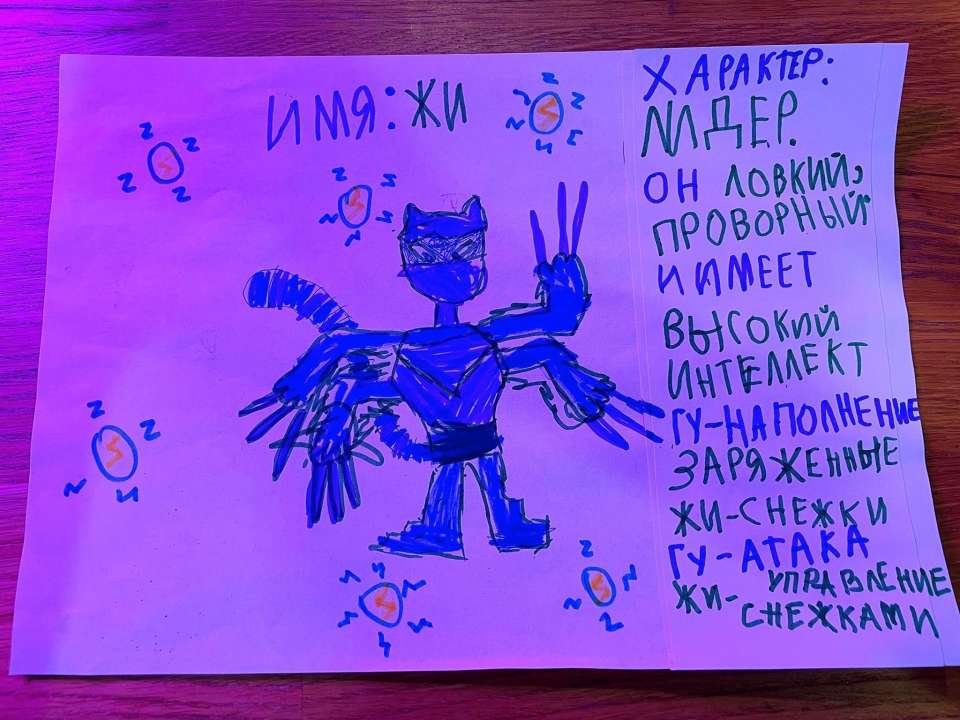 ИМЯ: ЖИ
ХАРАКТЕР:
ЛИДЕР.
ОН ЛОВКИЙ,
ПРОВОРНЫЙ
И ИМЕЕТ
ВЫСОКИЙ
ИНТЕЛЛЕКТ
ГУ-НАПОЛНЕНИЕ
ЗАРЯЖЕННЫЕ
ЖИ-СНЕЖКИ
ГУ-АТАКА
ЖИ- УПРАВЛЕНИЕ
СНЕЖКАМИ